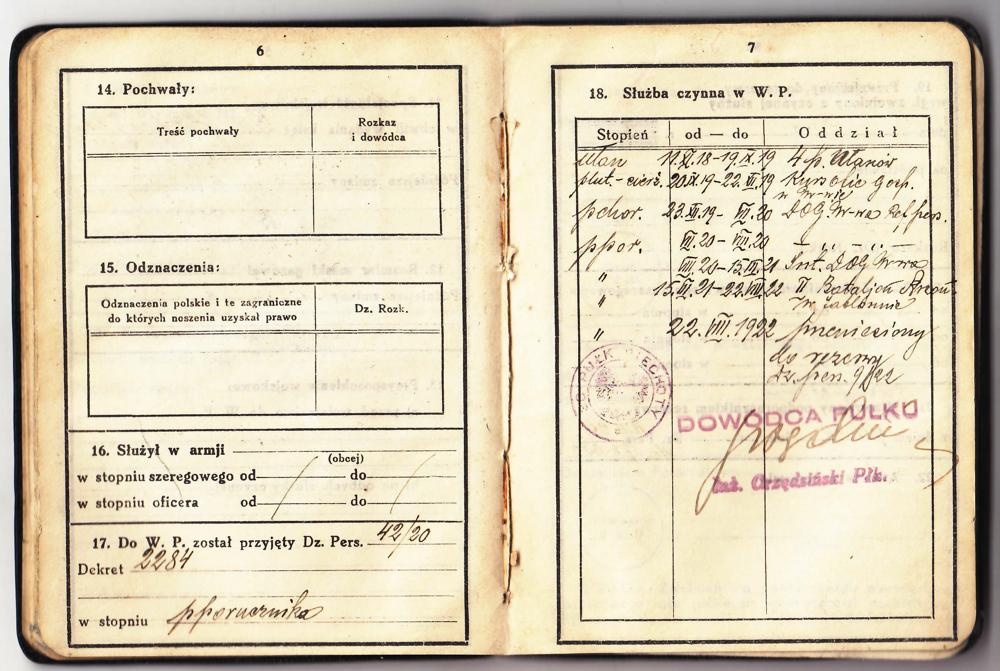 6
14. Pochwały:
Treść pochwały
Rozkaz
i dowódca
15. Odznaczenia:
Odznaczenia polskie i te zagraniczne
do których noszenia uzyskał prawo
Dz. Rozk.
16. Służył w armji
(obcej)
w stopniu szeregowego od do
w stopniu oficera od do
17. Do W. P. został przyjęty Dz. Pers. 42/20
Dekret 2284
w stopniu pporucznika
7
18. Służba czynna w W. P.
Stopień od — do Oddział
ułan 11.XI.18-19.IX.19 4 p. Ułanów
plut.- 20.IX.19-22.XII.19 Kurs gosp.
w W-wie
pchor. 23.XII.19- VII.20 DOG W-wa
ppor. VII.20- VIII.20 — „ „ —
" VIII.20-15.VI.21 Int. DOG W-wa
" 15.VI.21-22.VIII.22 II Bataljon
w Jabłonnie
" 22.VIII.1922 przeniesiony
do rezerwy
dz. pers. 9/22
PUŁK PIECHOTY
DOWÓDCA PUŁKU
Płk.